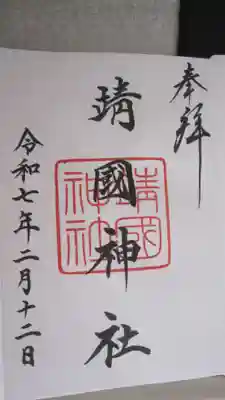 奉拝
靖國神社
靖國神社
令和七年二月十二日